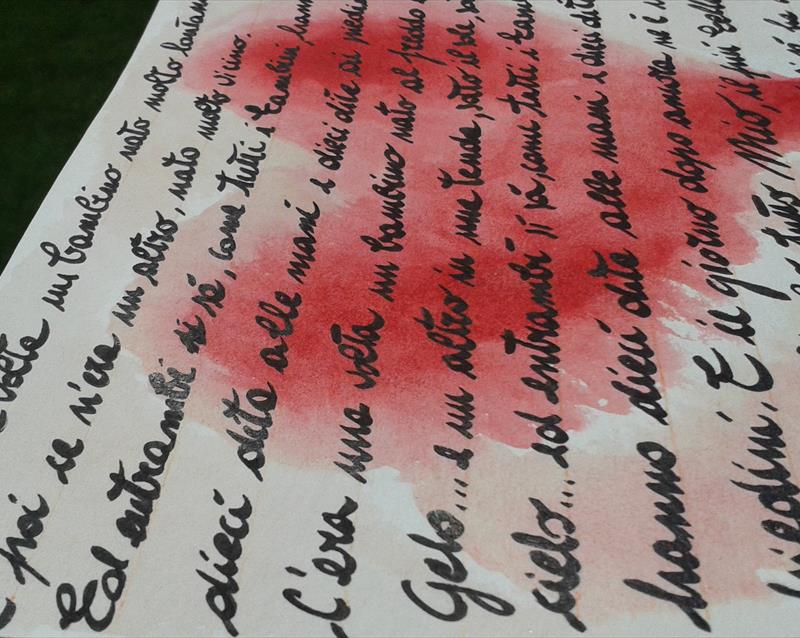 volta un bambino nato molto lontano
E poi ce n'era un altro, nato molto vicino.
Ed entrambi si sé, come tutti i bambini
dieci dita alle mani e dieci dita ai piedi
C'era una volta un bambino nato al freddo
Gelo... e un altro in una tenda, sotto il sole,
cielo... ed entrambi si sá, come tutti i bambini
hanno dieci dita alle mani e dieci dita
piedini. E il giorno dopo ancora
tutto Mio, il più bello